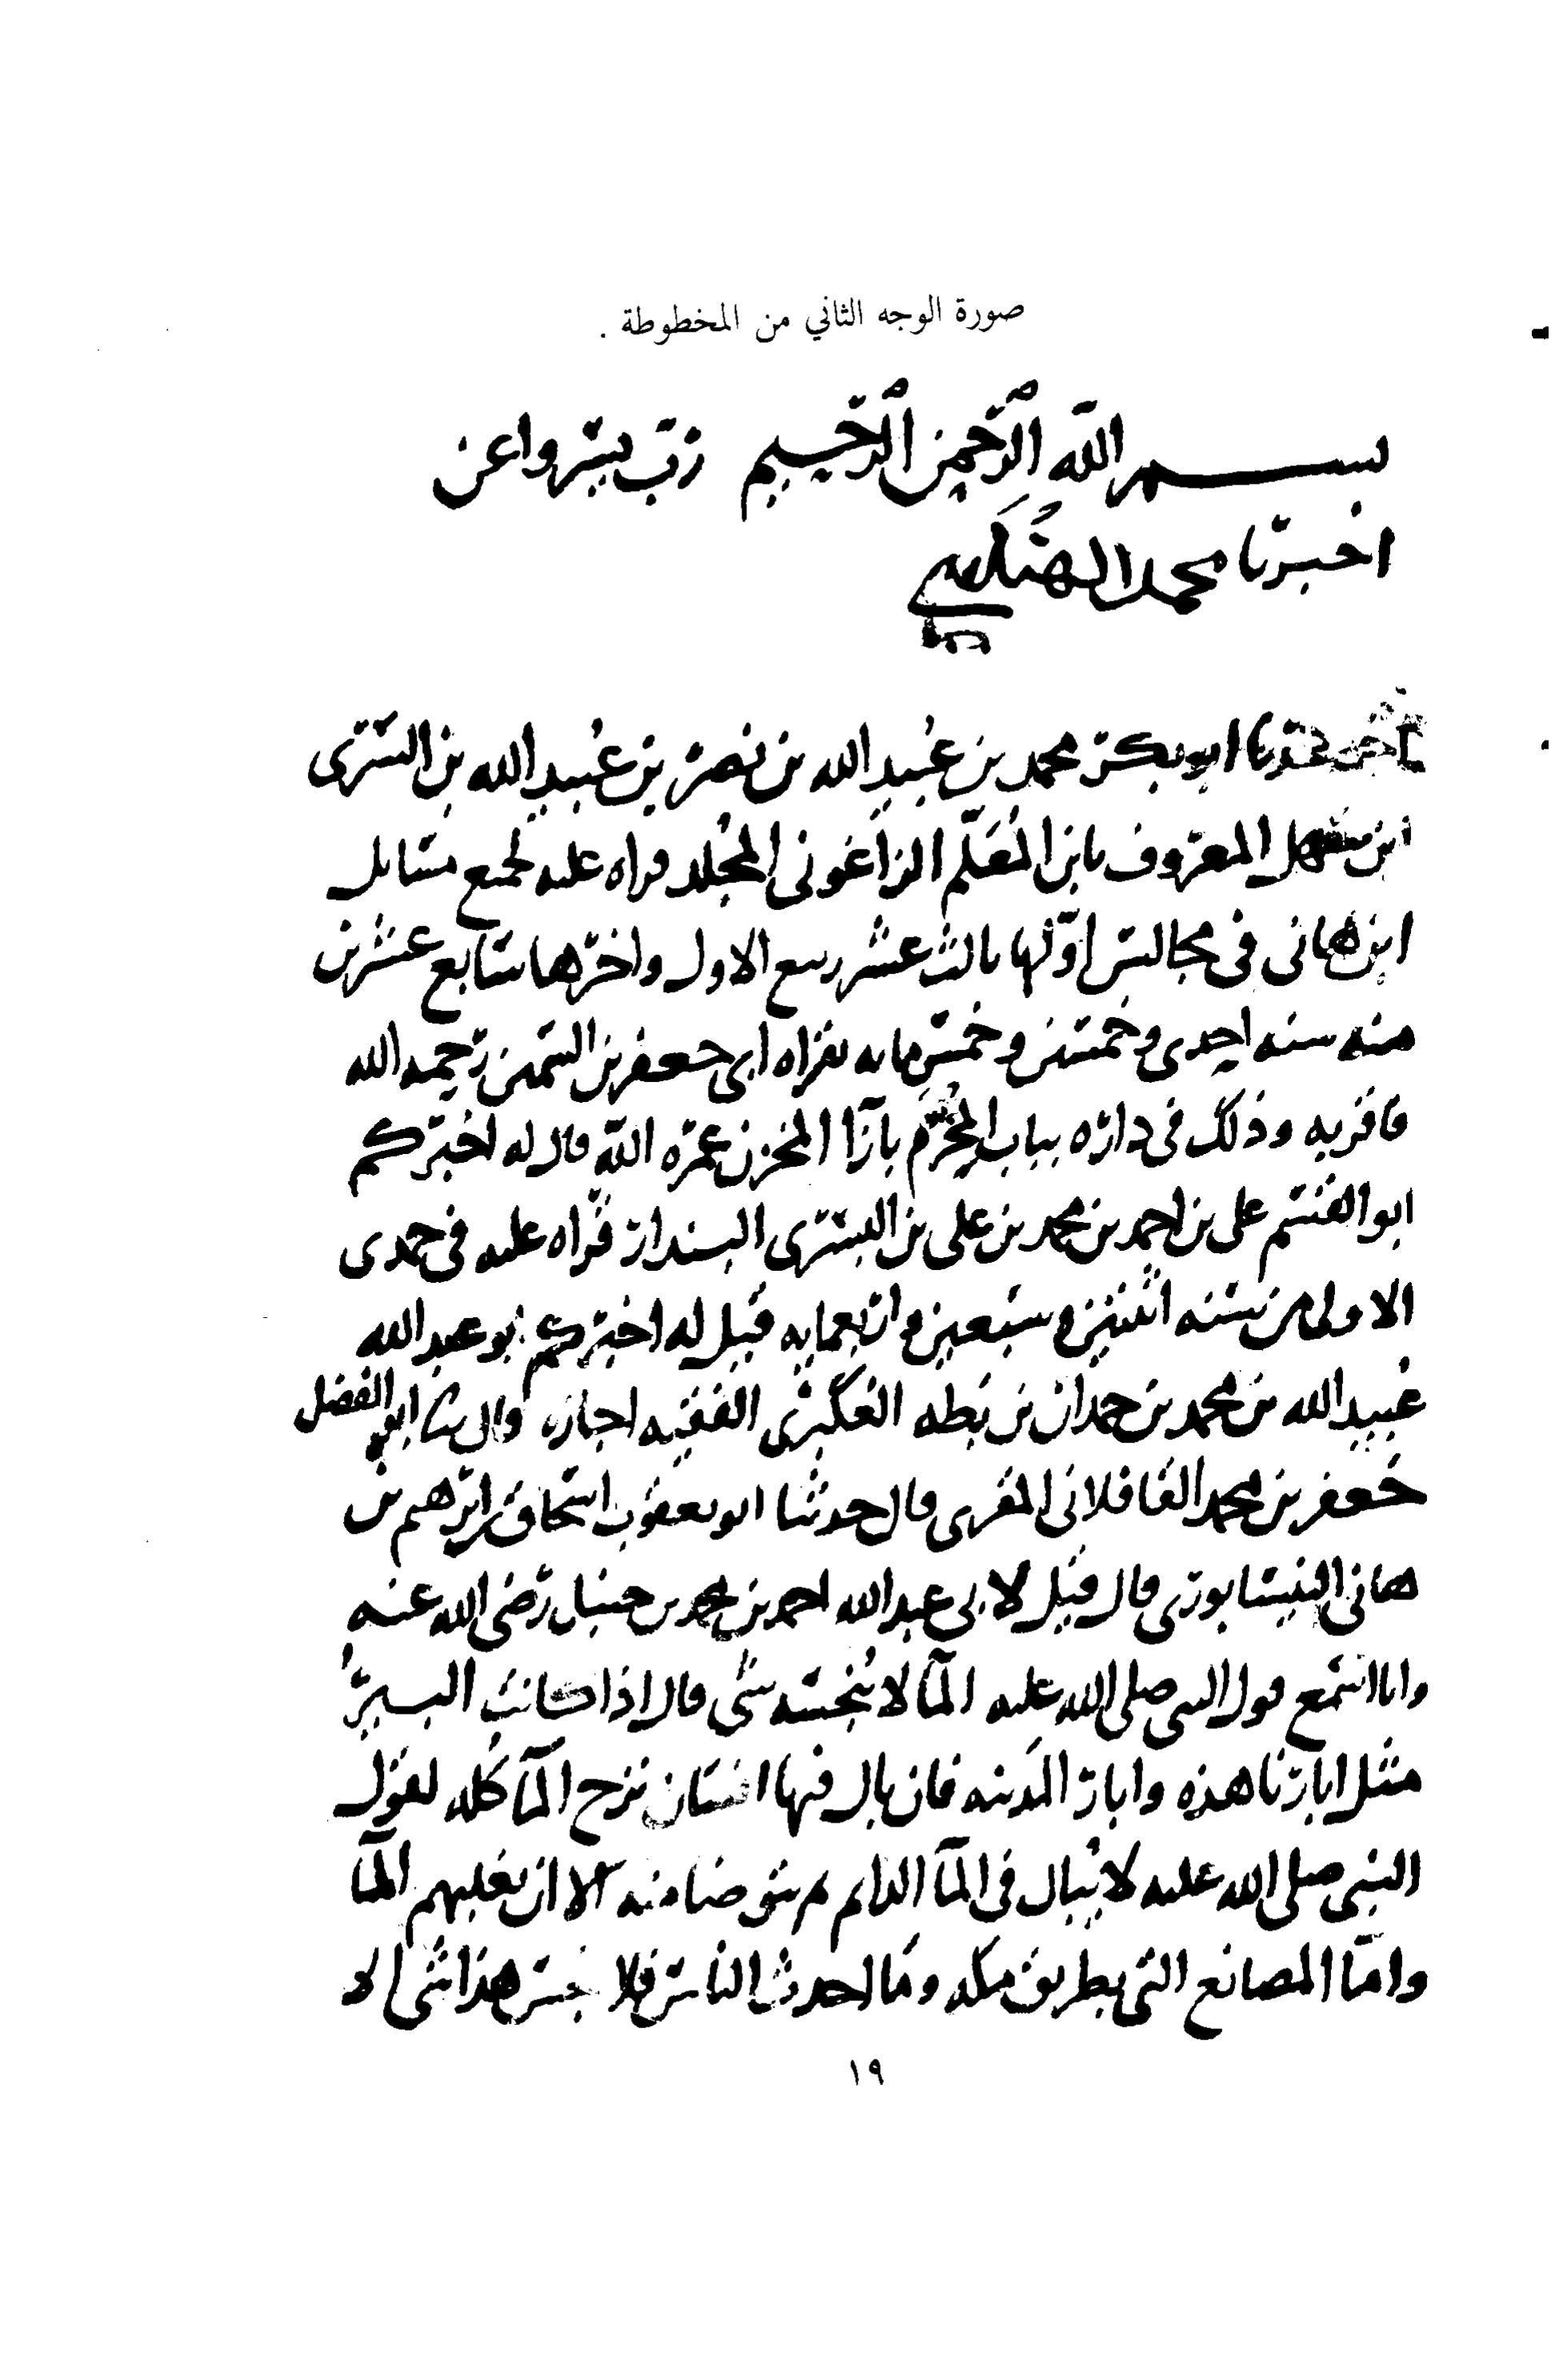 صورة الوجه الثاني من المخطوطة .
بسم الله الرحمن الرحيم رب يسر واعن
اخبرنا محمد
ابو بكر محمد بن عبيد الله بن نصر بن عبيد الله بن السرى
ابن سهل المعروف بابن المعلم الزاغونى المجلد قراه عليه لجميع مسايل
ابن هانى فى مجالس اولها ثالث عشر ربيع الاول واخرها سابع عشرين
منه سنه احدى وخمسين وخمس مايه بقراه ابى جعفر بن السمين رحمه الله
فاقر به وذلك فى داره بباب المخرم بازآ المخزن عمره الله قال له اخبركم
ابو القسم على بن احمد بن محمد بن على بن البسرى البندار قراه عليه فى جمدى
الاولى من سنه اثنتين وسبعين واربعمايه قيل له اخبركم ابو عبد الله
عبيد الله بن محمد بن حمدان بن بطه العكبرى الفقيه اجازه قال ثنا ابو الفضل
جعفر بن محمد القافلانى المقرى قال حدثنا ابو يعقوب اسحاق بن ابرهيم بن
هانى النيسابورى قال قيل لابى عبد الله احمد بن محمد بن حنبل رضى الله عنه
وانا اسمع قول النبى صلى الله عليه المآ لا ينجسه شى قال اذا كانت البير
مثل ابارنا هذه وابار المدينه فان بال فيها انسان نزح المآ كله لقول
النبى صلى الله عليه لا يبال فى المآ الدايم ثم يتوضا منه الا ان يغلبهم المآ
واما المصانع التى بطريق مكه وما احدث الناس فلا ينجس هذا شى الا
١٩